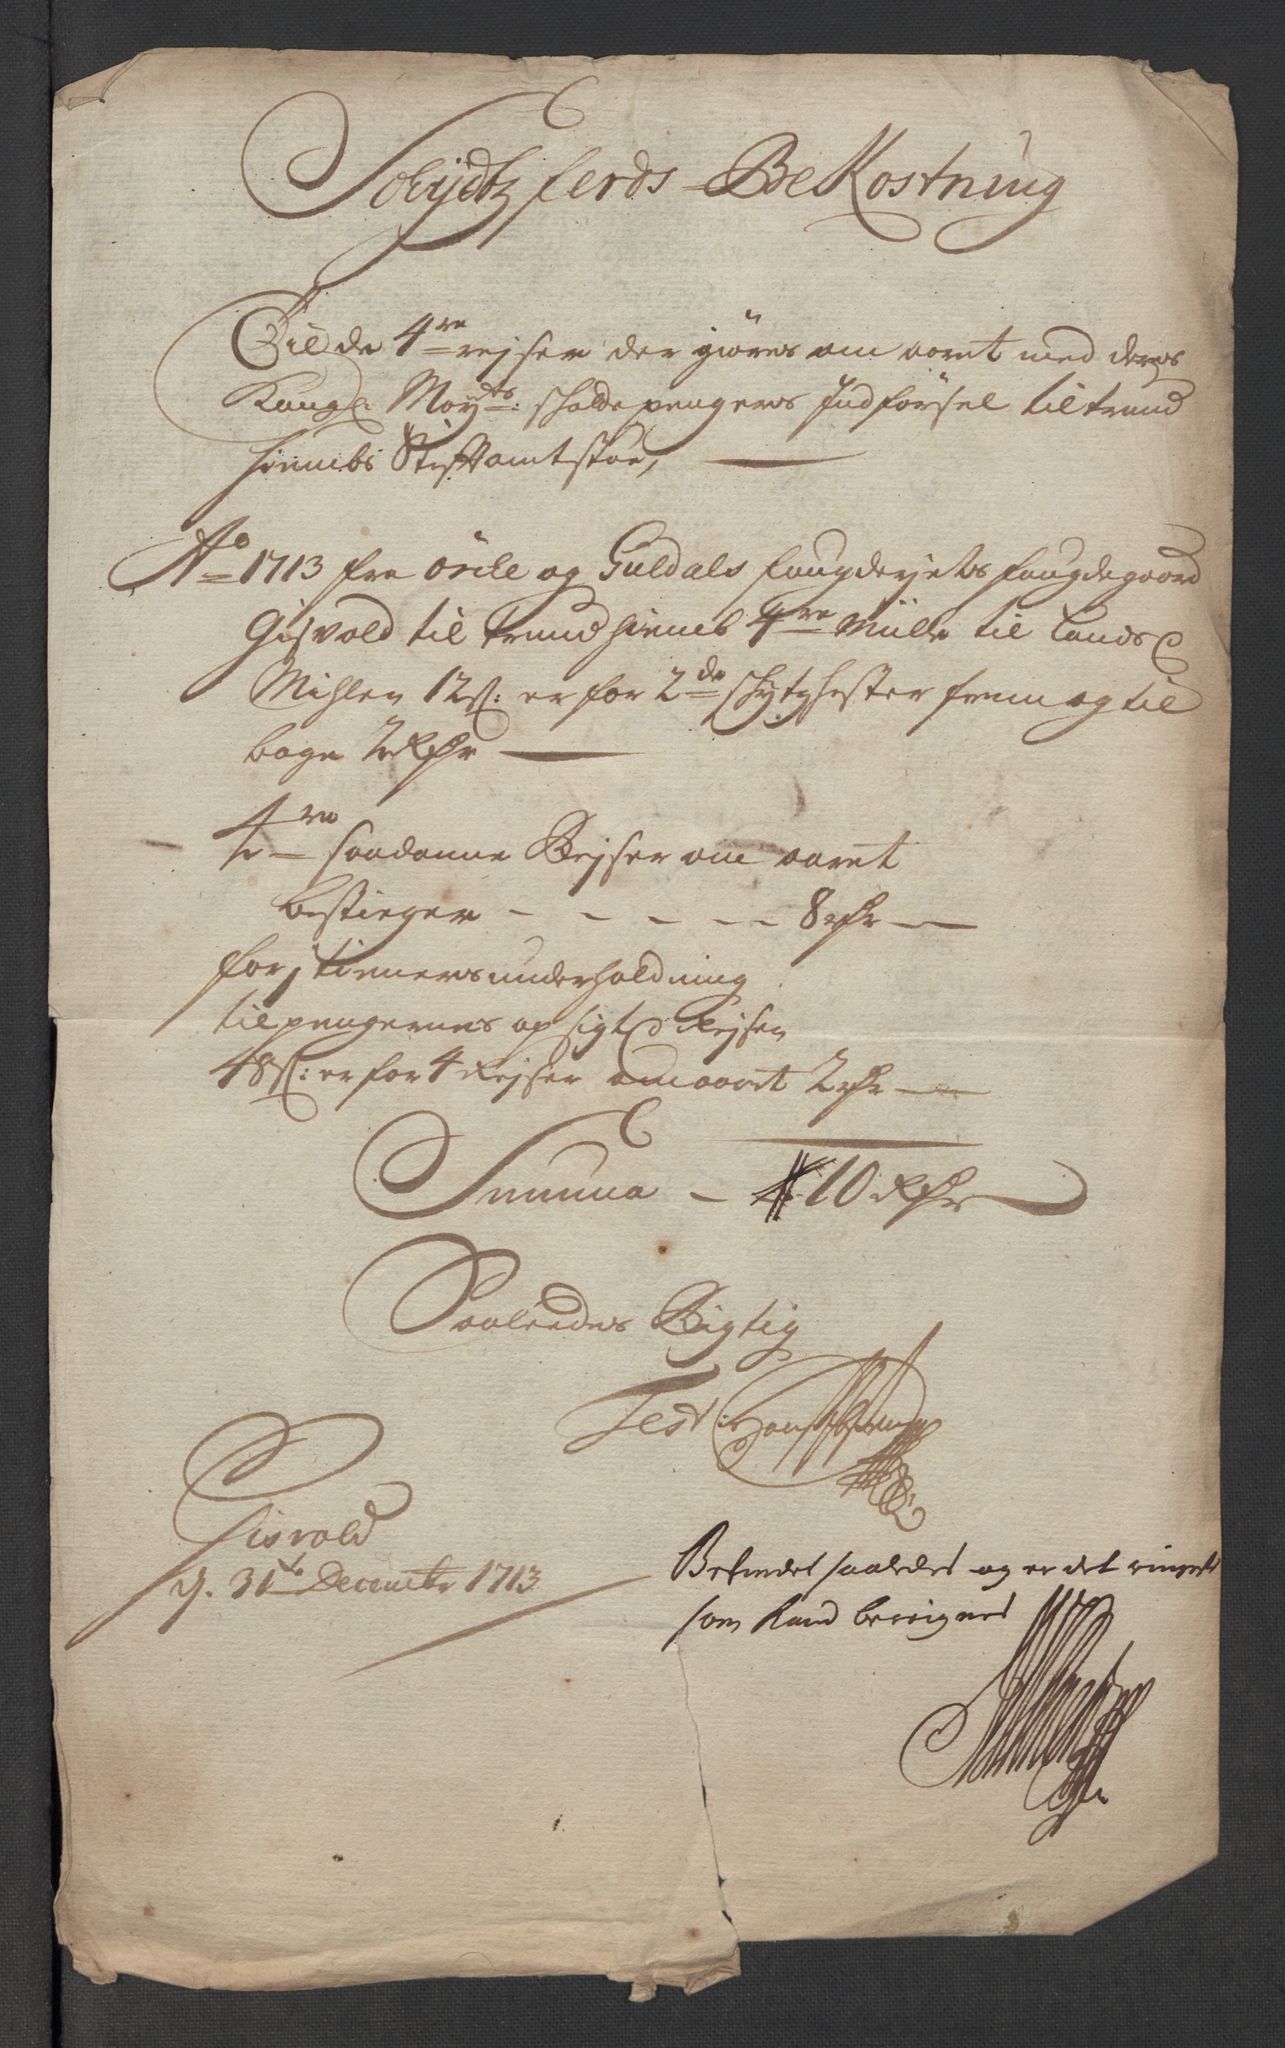 Schydtzferds Bekostning
Til de 4re rejser der giöres om aaret med deres
Kongl: Mayts: schatte pengers Indförsel til trund
hiembs Stiftamtstue,
Ao 1713 fra örche og Guldals faugderjets faugdegaard
Gisvold til trundhiemb 4re Miille til lands
Mihlen 12 s: er for 2de schytzhester frem og til
bage 2 Rdr
4re saadanne Rejser om aaret
bestieger - - - - - 8 rdr
for j tieners underholdning
til pengernes opsigt Rejsen
48 s: er for 4 Rejser om aaret 2 rdr
Summa - 10 Rdr
Saaleedes Rigtig
Test
Gisvold
d. 31te December 1713
Befindes saaledes og er det ringeste
som kand beregnes